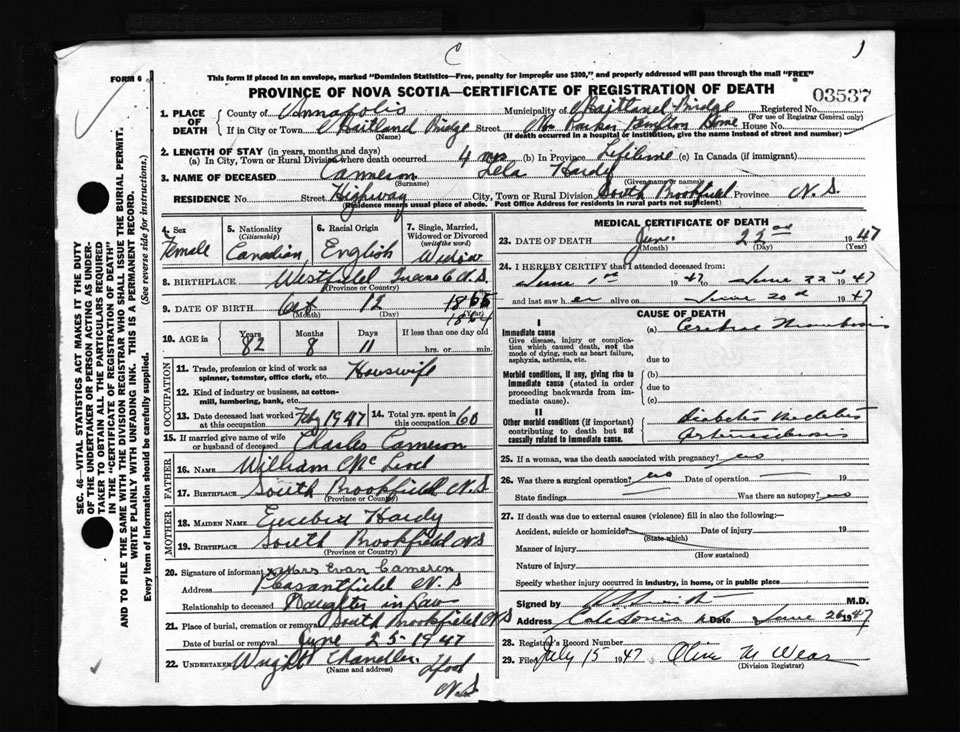 C
1
FORM 6
This form if placed in an envelope, marked "Dominion Statistics—Free, penalty for improper use $300," and properly addressed will pass through the mail "FREE"
PROVINCE OF NOVA SCOTIA—CERTIFICATE OF REGISTRATION OF DEATH
03537
1. PLACE OF DEATH
County of Annapolis Municipality of Maitland Bridge Registered No.
(For use of Registrar General only)
If in City or Town Maitland Bridge Street Home House No.
(Name) (If death occurred in a hospital or institution, give the name instead of street and number)
2. LENGTH OF STAY (in years, months and days)
(a) In City, Town or Rural Division where death occurred 4 mos (b) In Province Lifetime (c) In Canada (if immigrant)
3. NAME OF DECEASED Cameron Lela Hardy
(Surname) (Given name or names)
RESIDENCE No. Street Highway City, Town or Rural Division South Brookfield Province N.S.
(Residence means usual place of abode. Post Office Address for residents in rural parts not sufficient)
4. Sex Female
5. Nationality (Citizenship) Canadian
6. Racial Origin English
7. Single, Married, Widowed or Divorced (write the word) Widow
8. BIRTHPLACE Westfield Queens Co N.S.
(Province or Country)
9. DATE OF BIRTH Oct 12 1865
1864
(Month) (Day) (Year)
10. AGE in Years 82 Months 8 Days 11 If less than one day old hrs. or min.
OCCUPATION
11. Trade, profession or kind of work as spinner, teamster, office clerk, etc. Houswife
12. Kind of industry or business, as cotton-mill, lumbering, bank, etc.
13. Date deceased last worked at this occupation Feby 1947
14. Total yrs. spent in this occupation 60
15. If married give name of wife or husband of deceased Charles Cameron
FATHER
16. NAME William Mc Leod
17. BIRTHPLACE South Brookfield N.S
(Province or Country)
MOTHER
18. MAIDEN NAME Hardy
19. BIRTHPLACE South Brookfield NS
(Province or Country)
20. Signature of informant Mrs Evan Cameron
Address Pleasantfield N.S
Relationship to deceased Daughter in Law
21. Place of burial, cremation or removal South Brookfield NS
Date of burial or removal June 25-1947
22. UNDERTAKER Wright Chandler. L'pool
(Name and address)
N.S
MEDICAL CERTIFICATE OF DEATH
23. DATE OF DEATH June 22nd 1947
(Month) (Day)
24. I HEREBY CERTIFY that I attended deceased from:
June 1st 1947 to June 22nd 1947
and last saw her alive on June 20th 1947
CAUSE OF DEATH
I
Immediate cause
Give disease, injury or complication which caused death, not the mode of dying, such as heart failure, asphyxia, asthenia, etc.
(a) Cerebral Thrombosis
due to
Morbid conditions, if any, giving rise to immediate cause (stated in order proceeding backwards from immediate cause).
(b)
due to
(c)
II
Other morbid conditions (if important) contributing to death but not causally related to immediate cause.
Diabetes Mellitus
Arteriosclerosis
25. If a woman, was the death associated with pregnancy? no
26. Was there a surgical operation? no Date of operation 19
State findings Was there an autopsy? no
27. If death was due to external causes (violence) fill in also the following:—
Accident, suicide or homicide? Date of injury 19
(State which)
Manner of injury
(How sustained)
Nature of injury
Specify whether injury occurred in industry, in home, or in public place
Signed by M.D.
Address Caledonia Date June 26 1947
28. Registrar's Record Number
29. Filed July 15 1947 Olive M Wear
(Division Registrar)
SEC. 46—VITAL STATISTICS ACT MAKES IT THE DUTY
OF THE UNDERTAKER OR PERSON ACTING AS UNDERTAKER TO OBTAIN ALL THE PARTICULARS REQUIRED
IN THE "CERTIFICATE OF REGISTRATION OF DEATH"
AND TO FILE THE SAME WITH THE DIVISION REGISTRAR WHO SHALL ISSUE THE BURIAL PERMIT.
WRITE PLAINLY WITH UNFADING INK. THIS IS A PERMANENT RECORD.
Every item of information should be carefully supplied. (See reverse side for instructions.)